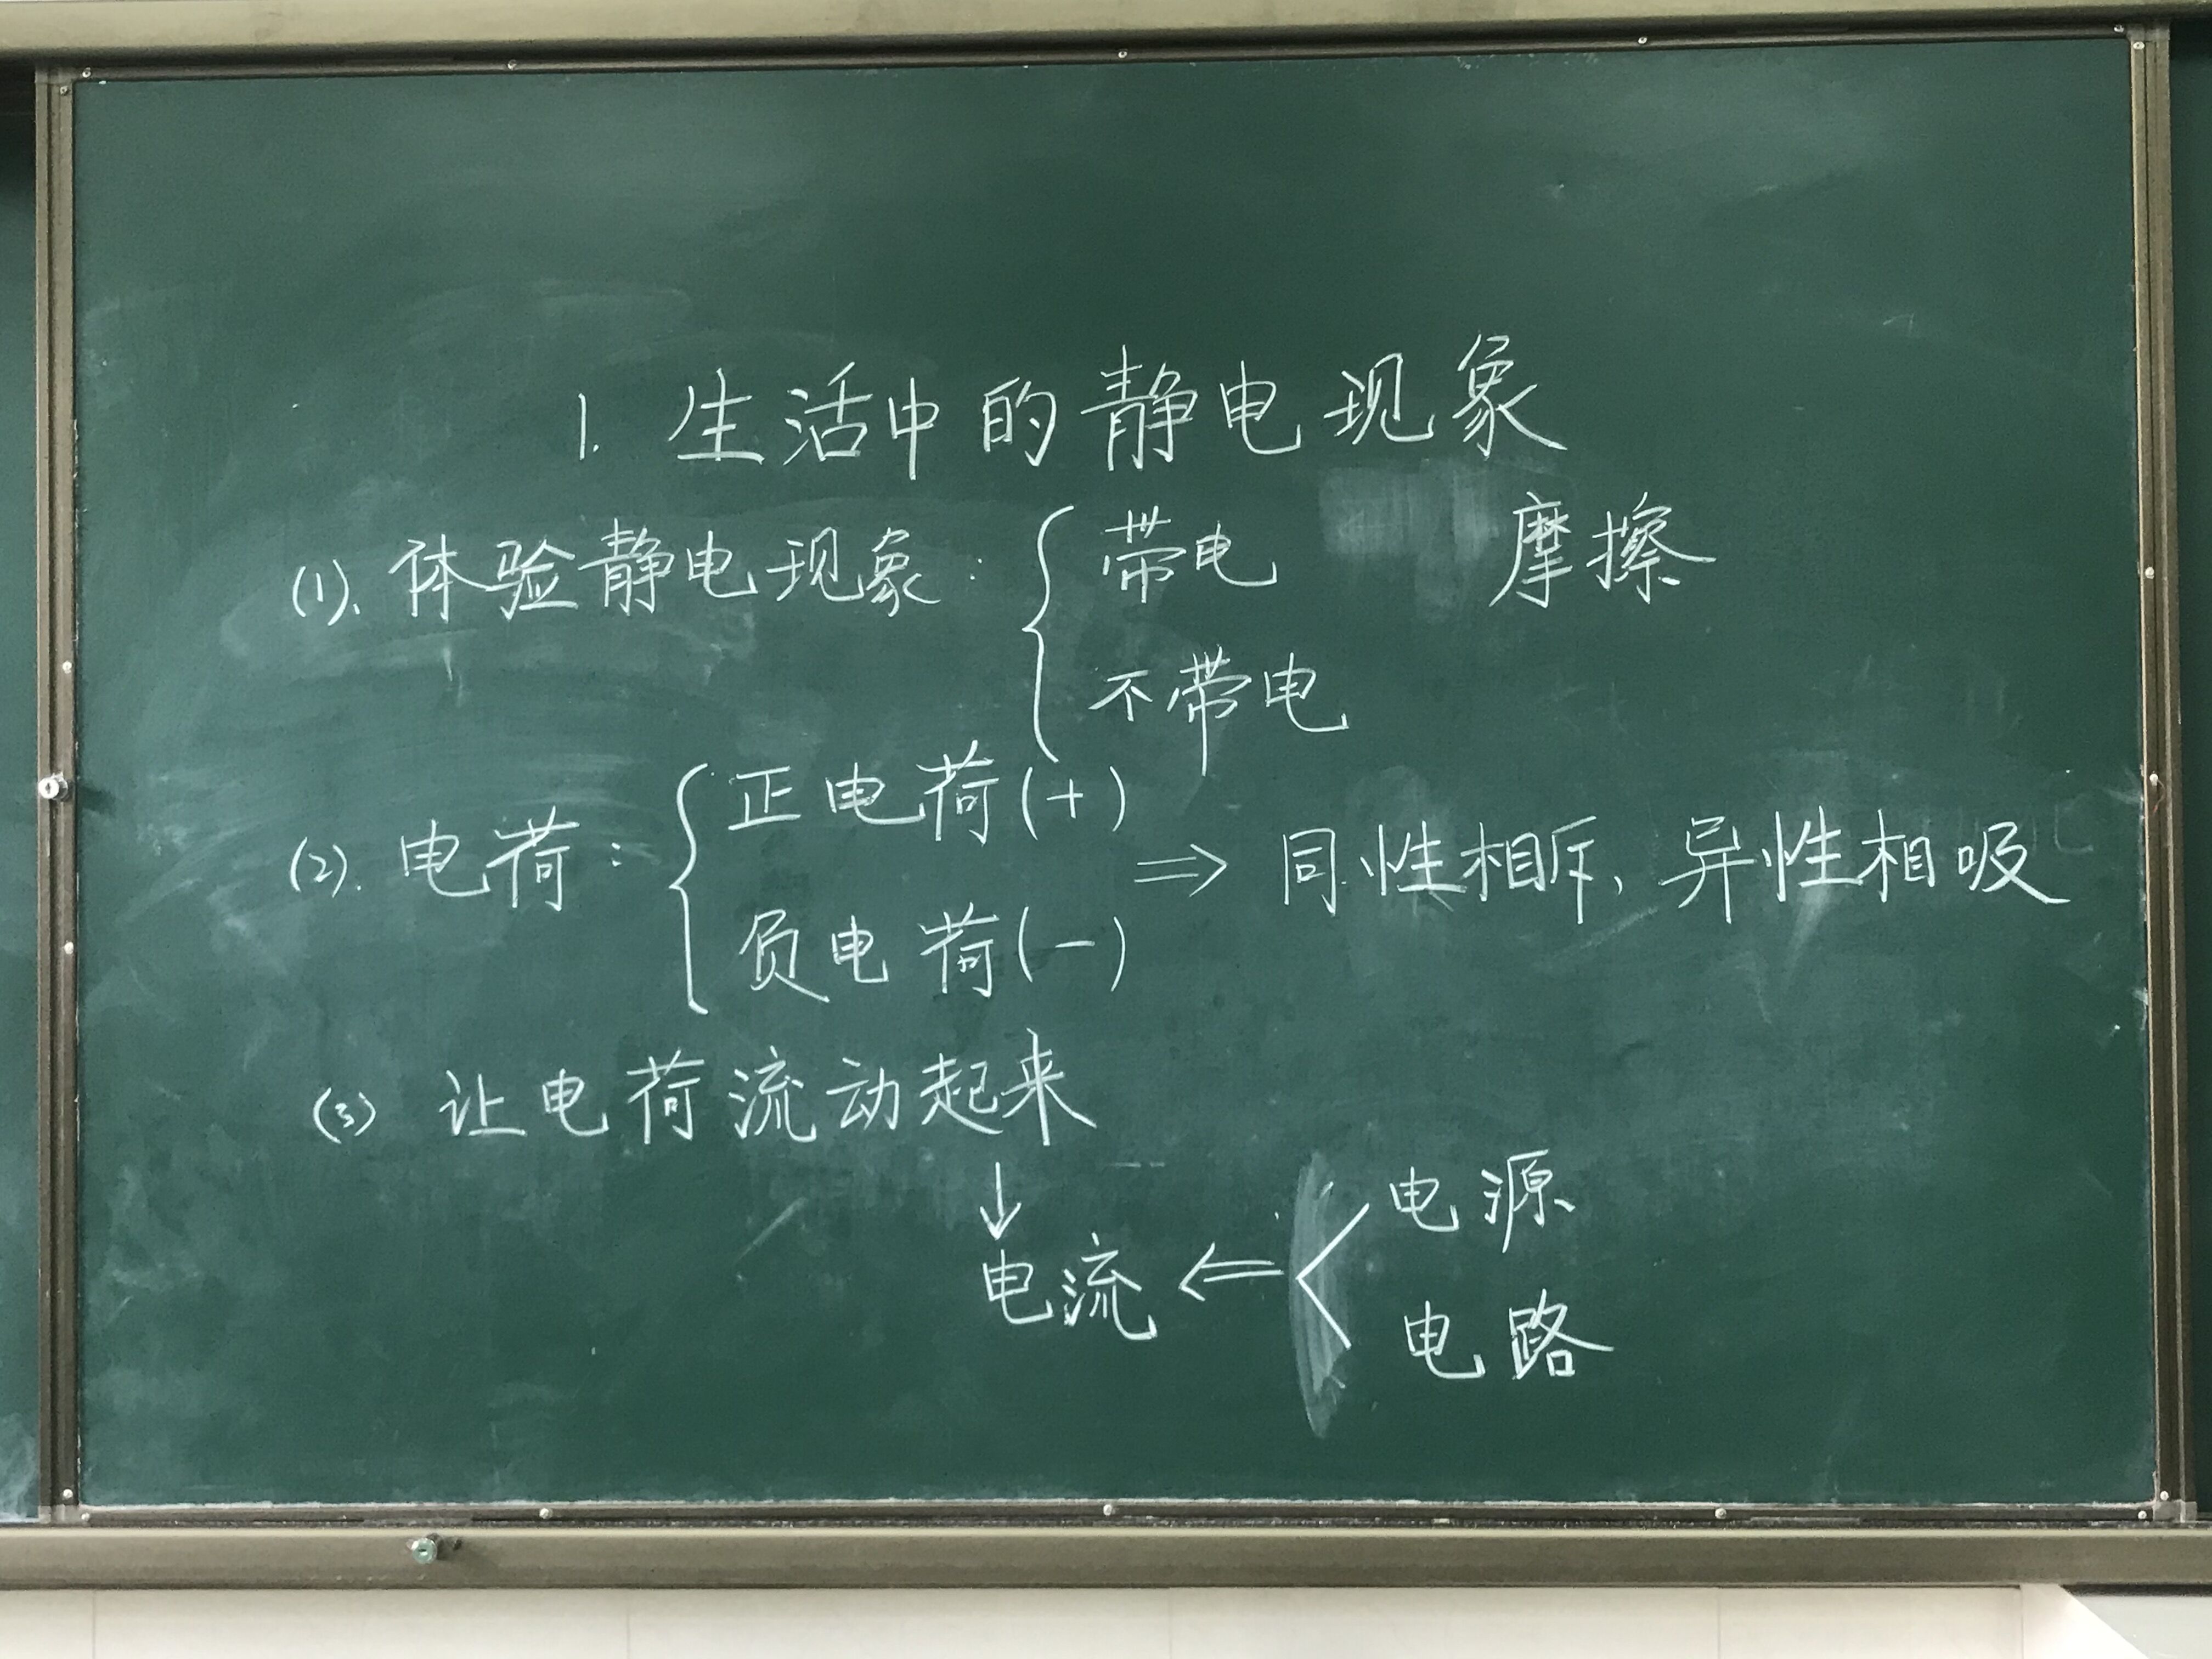 1. 生活中的静电现象
(1). 体验静电现象: { 带电 摩擦
不带电
(2). 电荷: { 正电荷(+)
负电荷(-)
⇒ 同性相斥, 异性相吸
(3) 让电荷流动起来
↓
电流 ⇐ < 电源
电路